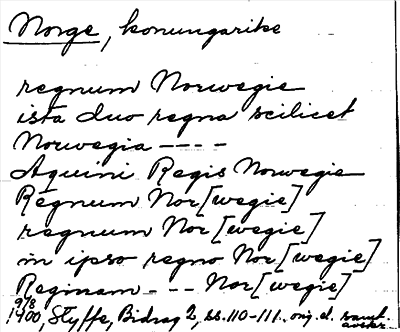 Norge, konungarike
regnum Norwegie
ista duo regna scilicet
Norwegia ----
Aquini Regis Norwegie
Regnum Nor[wegie]
regnum Nor[wegie]
in ipso regno Nor[wegie]
Reginam --- Nor[wegie]
9/8
1400, Styffe, Bidrag 2, ss. 110-111. orig. el. samt.
avskr.